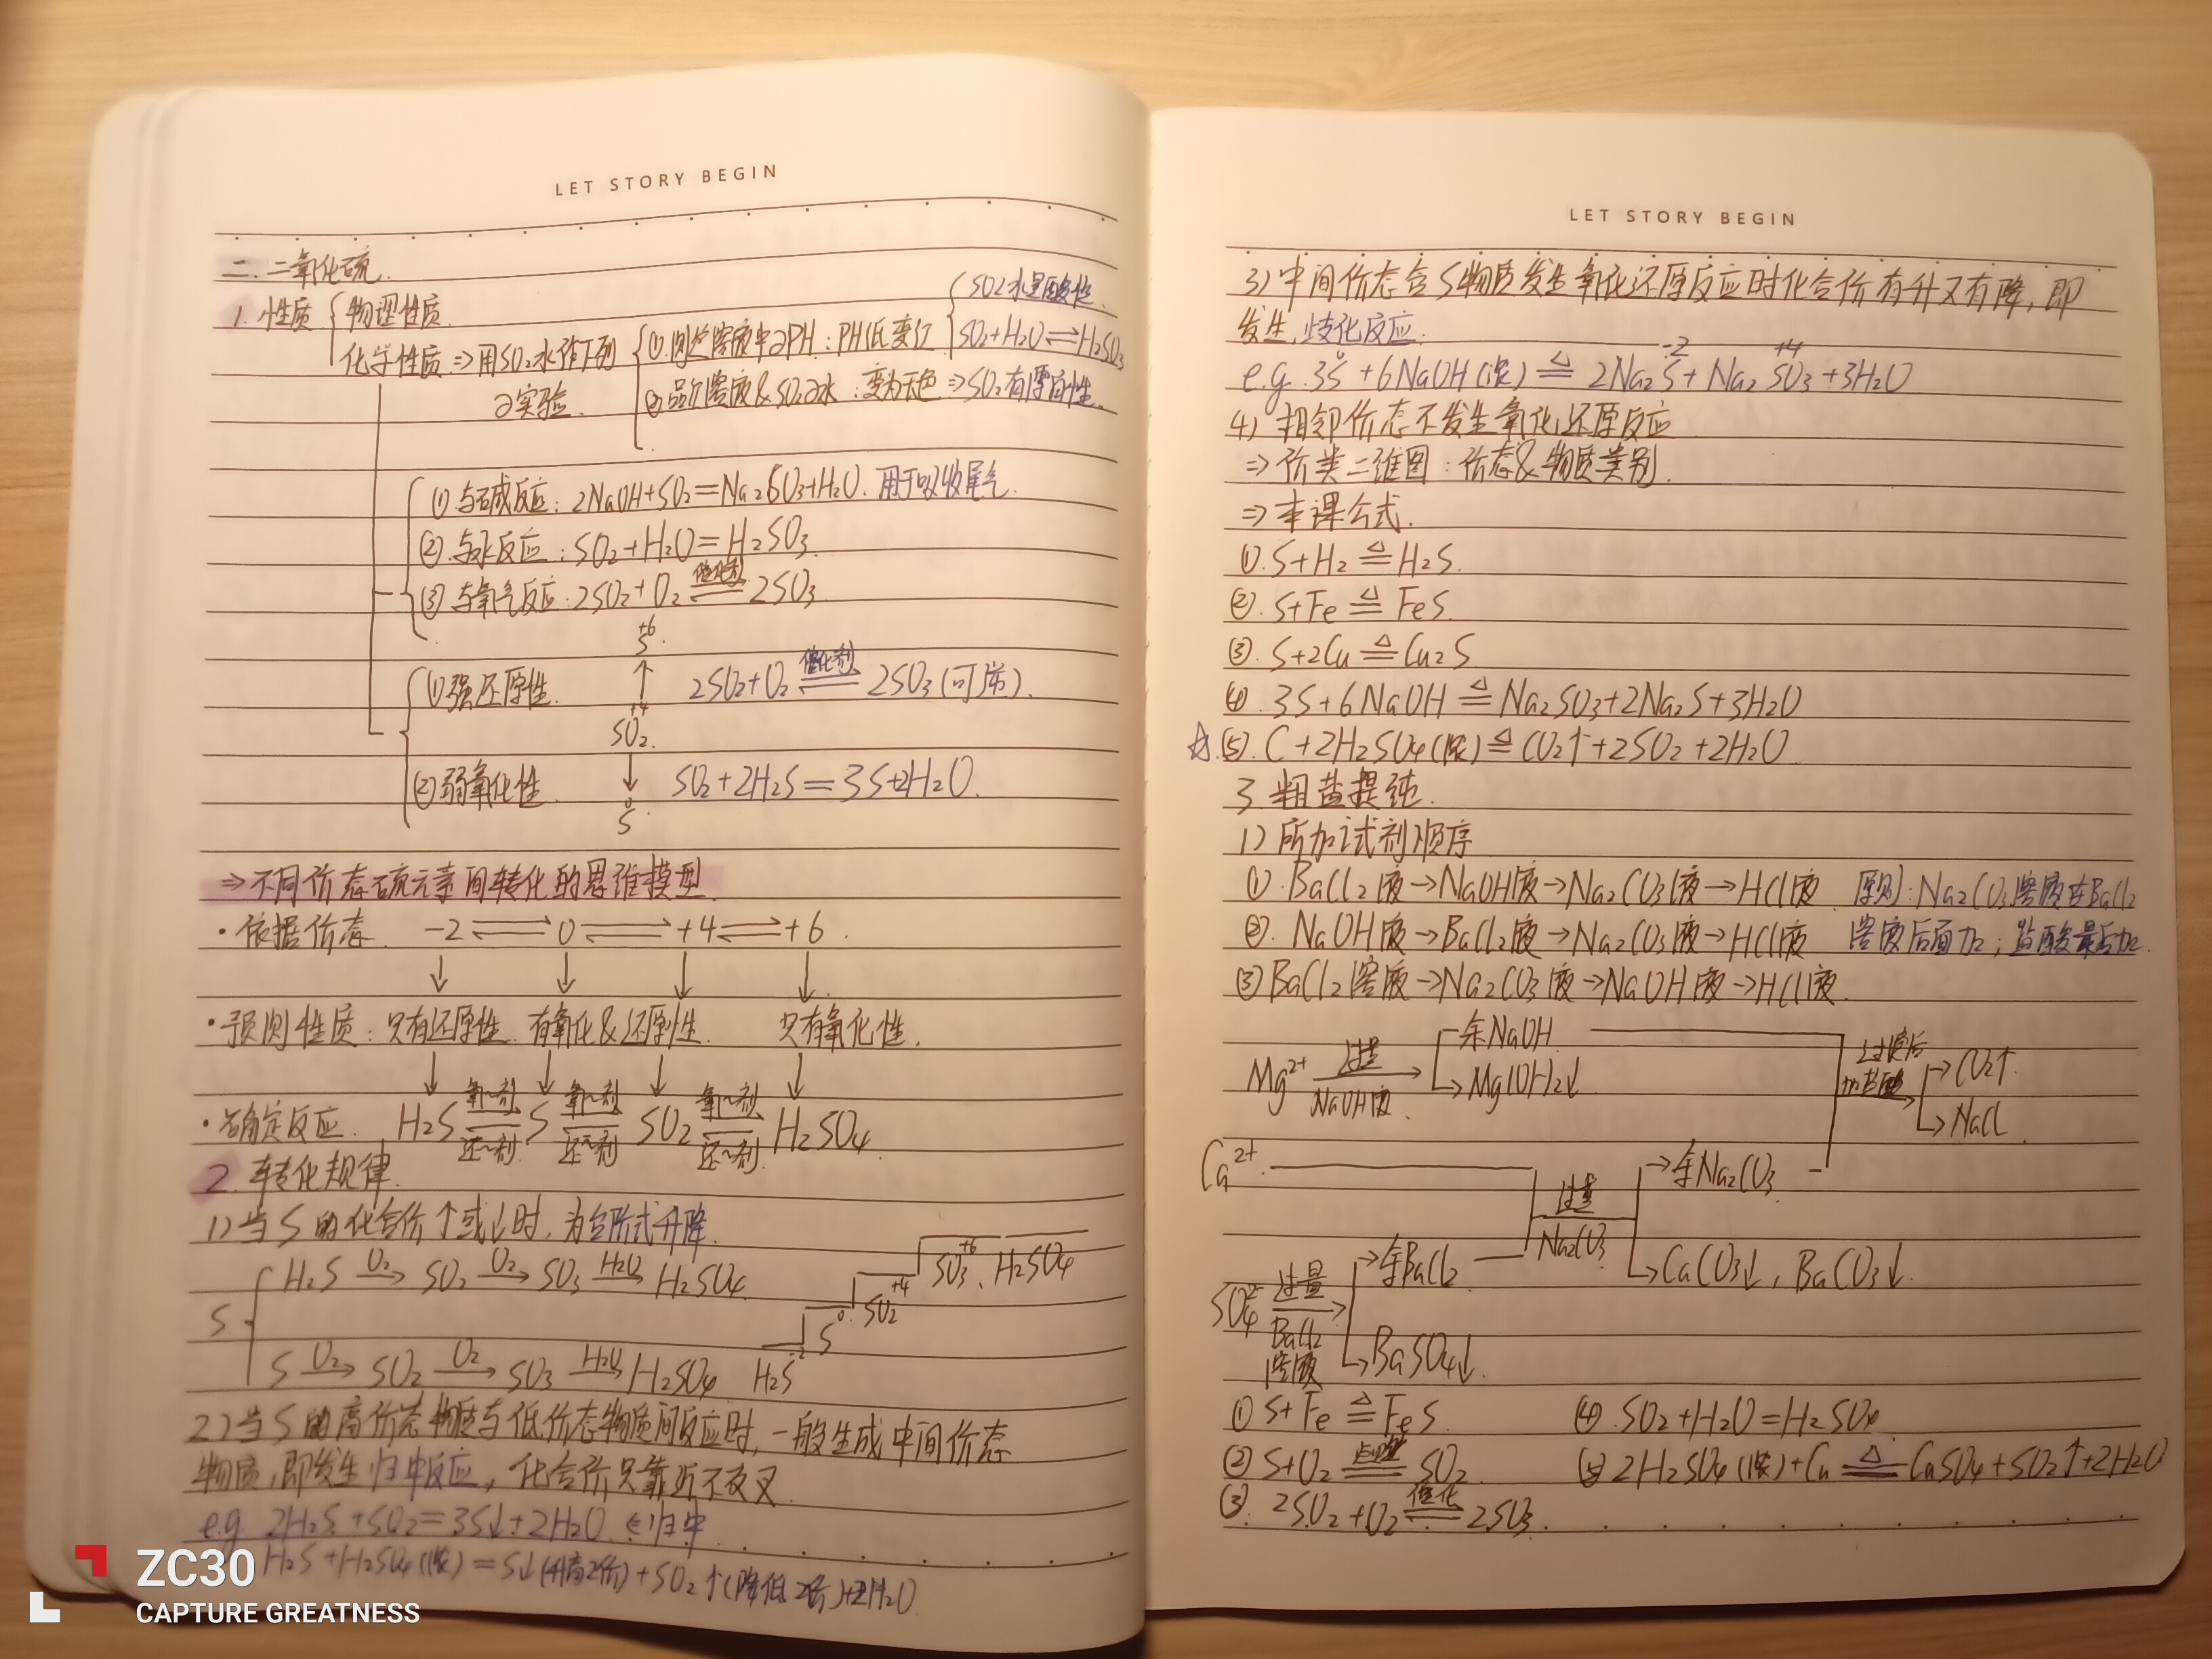 LET STORY BEGIN
二.二氧化硫.
1.性质 物理性质.
化学性质⇒用SO₂水作下列
实验.
① 溶液中 PH:PH低变红
SO₂水显酸性.
SO₂+H₂O⇌H₂SO₃
②品红溶液&SO₂ 水:变为无色⇒SO₂有漂白性.
①与碱反应:2NaOH+SO₂=Na₂SO₃+H₂O.用于吸收尾气.
②.与水反应:SO₂+H₂O=H₂SO₃.
③与氧气反应:2SO₂+O₂ 催化剂⇌ 2SO₃
+6
S
①强还原性. ↑ 2SO₂+O₂ 催化剂⇌ 2SO₃(可逆).
+4
SO₂.
②弱氧化性 ↓ SO₂+2H₂S=3S+2H₂O.
0
S
⇒不同价态硫元素间转化的思维模型
·依据价态 -2⇌0⇌+4⇌+6.
↓ ↓ ↓ ↓
·预测性质:只有还原性.有氧化&还原性. 只有氧化性.
↓ ↓ ↓ ↓
·确定反应. H₂S 氧~剂⇌还~剂 S 氧~剂⇌还~剂 SO₂ 氧~剂⇌还~剂 H₂SO₄
2.转化规律.
1)当S的化合价↑或↓时,为台阶式升降.
S. H₂S O₂→ SO₂ O₂→ SO₃ H₂O→ H₂SO₄
S O₂→ SO₂ O₂→ SO₃ H₂O→ H₂SO₄
-2 H₂S 0 S +4 SO₂ +6 SO₃、H₂SO₄
2)当S的高价态物质与低价态物质间反应时,一般生成中间价态
物质,即发生归中反应,化合价只靠近不交叉.
e.g 2H₂S+SO₂=3S↓+2H₂O ∈归中
H₂S+H₂SO₄(浓)=S↓(升高2价)+SO₂↑(降低2价)+2H₂O
LET STORY BEGIN
3)中间价态含S物质发生氧化还原反应时化合价有升又有降,即
发生歧化反应.
e.g.3S+6NaOH(浓) △= 2Na₂S+Na₂SO₃+3H₂O
0 -2 +4
4)相邻价态不发生氧化还原反应
⇒价类二维图:价态&物质类别.
⇒本课公式.
①.S+H₂ △= H₂S.
②.S+Fe △= FeS.
③.S+2Cu △= Cu₂S
④.3S+6NaOH △= Na₂SO₃+2Na₂S+3H₂O
☆⑤.C+2H₂SO₄(浓) △= CO₂↑+2SO₂+2H₂O
3.粗盐提纯.
1)所加试剂顺序
①.BaCl₂液→NaOH液→Na₂CO₃液→HCl液 原则:Na₂CO₃溶液在BaCl₂
②.NaOH液→BaCl₂液→Na₂CO₃液→HCl液 溶液后面加;盐酸最后加.
③BaCl₂溶液→Na₂CO₃液→NaOH液→HCl液.
Mg²⁺ 过量 NaOH液→ 余NaOH
→Mg(OH)₂↓
过滤后 加盐酸 →CO₂↑
→NaCl.
Ca²⁺. 过量 Na₂CO₃ →余Na₂CO₃
→CaCO₃↓,BaCO₃↓.
SO₄²⁻ 过量 BaCl₂ 溶液 →余BaCl₂
→BaSO₄↓.
①S+Fe △= FeS. ④.SO₂+H₂O=H₂SO₃.
②S+O₂ 点燃= SO₂. ⑤2H₂SO₄(浓)+Cu △= CuSO₄+SO₂↑+2H₂O
③.2SO₂+O₂ 催化⇌ 2SO₃.
ZC30
CAPTURE GREATNESS